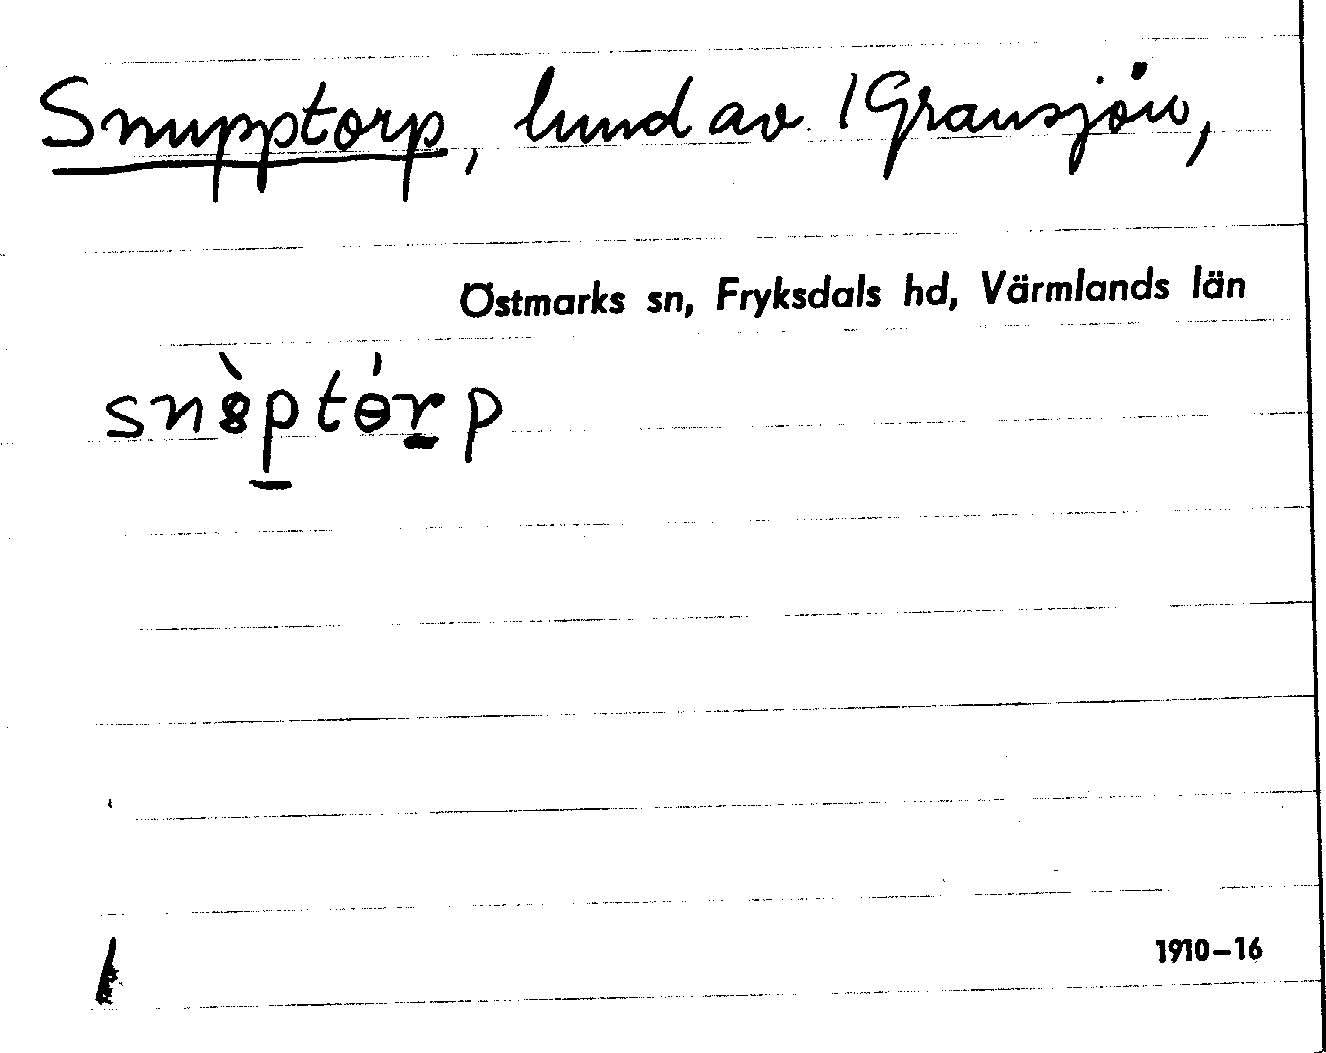 Snupptorp, lund av /Gransjön,
Östmarks sn, Fryksdals hd, Värmlands län
1910–16